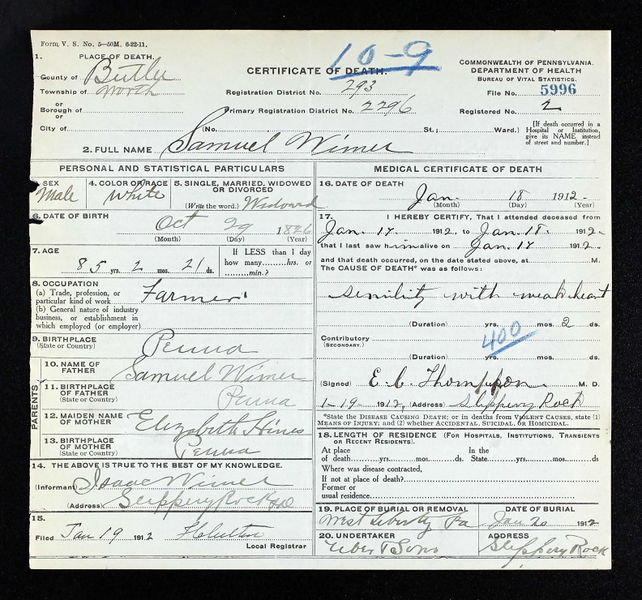 Form V. S. No. 5—50M. 6-22-11.
10-9
1. PLACE OF DEATH.
County of Butler
Township of Worth
or
Borough of
or
City of
CERTIFICATE OF DEATH.
Registration District No. 293
Primary Registration District No. 2296
(No. St.; Ward.)
COMMONWEALTH OF PENNSYLVANIA.
DEPARTMENT OF HEALTH
BUREAU OF VITAL STATISTICS.
File No. 5996
Registered No. 2
[If death occurred in a Hospital or Institution, give its NAME instead of street and number.]
2. FULL NAME Samuel Wimer
PERSONAL AND STATISTICAL PARTICULARS
3. SEX
Male
4. COLOR OR RACE
White
5. SINGLE, MARRIED, WIDOWED OR DIVORCED
(Write the word.) Widowed
6. DATE OF BIRTH
Oct 29 1826
(Month) (Day) (Year)
7. AGE
85 yrs. 2 mos. 21 ds.
If LESS than 1 day how many......hrs. or ......min.?
8. OCCUPATION
(a) Trade, profession, or particular kind of work Farmer
(b) General nature of industry business, or establishment in which employed (or employer)
9. BIRTHPLACE
(State or Country) Penna
PARENTS
10. NAME OF FATHER Samuel Wimer
11. BIRTHPLACE OF FATHER
(State or Country) Penna
12. MAIDEN NAME OF MOTHER Elizabeth Hines
13. BIRTHPLACE OF MOTHER
(State or Country) Penna
14. THE ABOVE IS TRUE TO THE BEST OF MY KNOWLEDGE.
(Informant) Isaac Wimer
(Address) Slippery Rock
15.
Filed Jan 19 1912
Local Registrar
MEDICAL CERTIFICATE OF DEATH
16. DATE OF DEATH
Jan. 18 1912.
(Month) (Day) (Year)
17. I HEREBY CERTIFY, That I attended deceased from
Jan. 17. 1912 to Jan. 18. 1912
that I last saw him alive on Jan. 17 1912.
and that death occurred, on the date stated above, at M.
The CAUSE OF DEATH* was as follows:
senility with weak heart
(Duration) yrs. mos. 2 ds.
Contributory
(SECONDARY.)
400
(Duration) yrs. mos. ds.
(Signed) E. C. Thompson M. D.
1-19-1912 (Address) Slippery Rock
*State the DISEASE CAUSING DEATH; or in deaths from VIOLENT CAUSES, state (1) MEANS OF INJURY; and (2) whether ACCIDENTAL, SUICIDAL, OR HOMICIDAL.
18. LENGTH OF RESIDENCE (FOR HOSPITALS, INSTITUTIONS, TRANSIENTS OR RECENT RESIDENTS).
At place of death......yrs.......mos.......ds. In the State......yrs.......mos.......ds.
Where was disease contracted,
If not at place of death?
Former or usual residence
19. PLACE OF BURIAL OR REMOVAL
West Liberty Pa
DATE OF BURIAL
Jan 20 1912
20. UNDERTAKER
Uber & Sons
ADDRESS
Slippery Rock